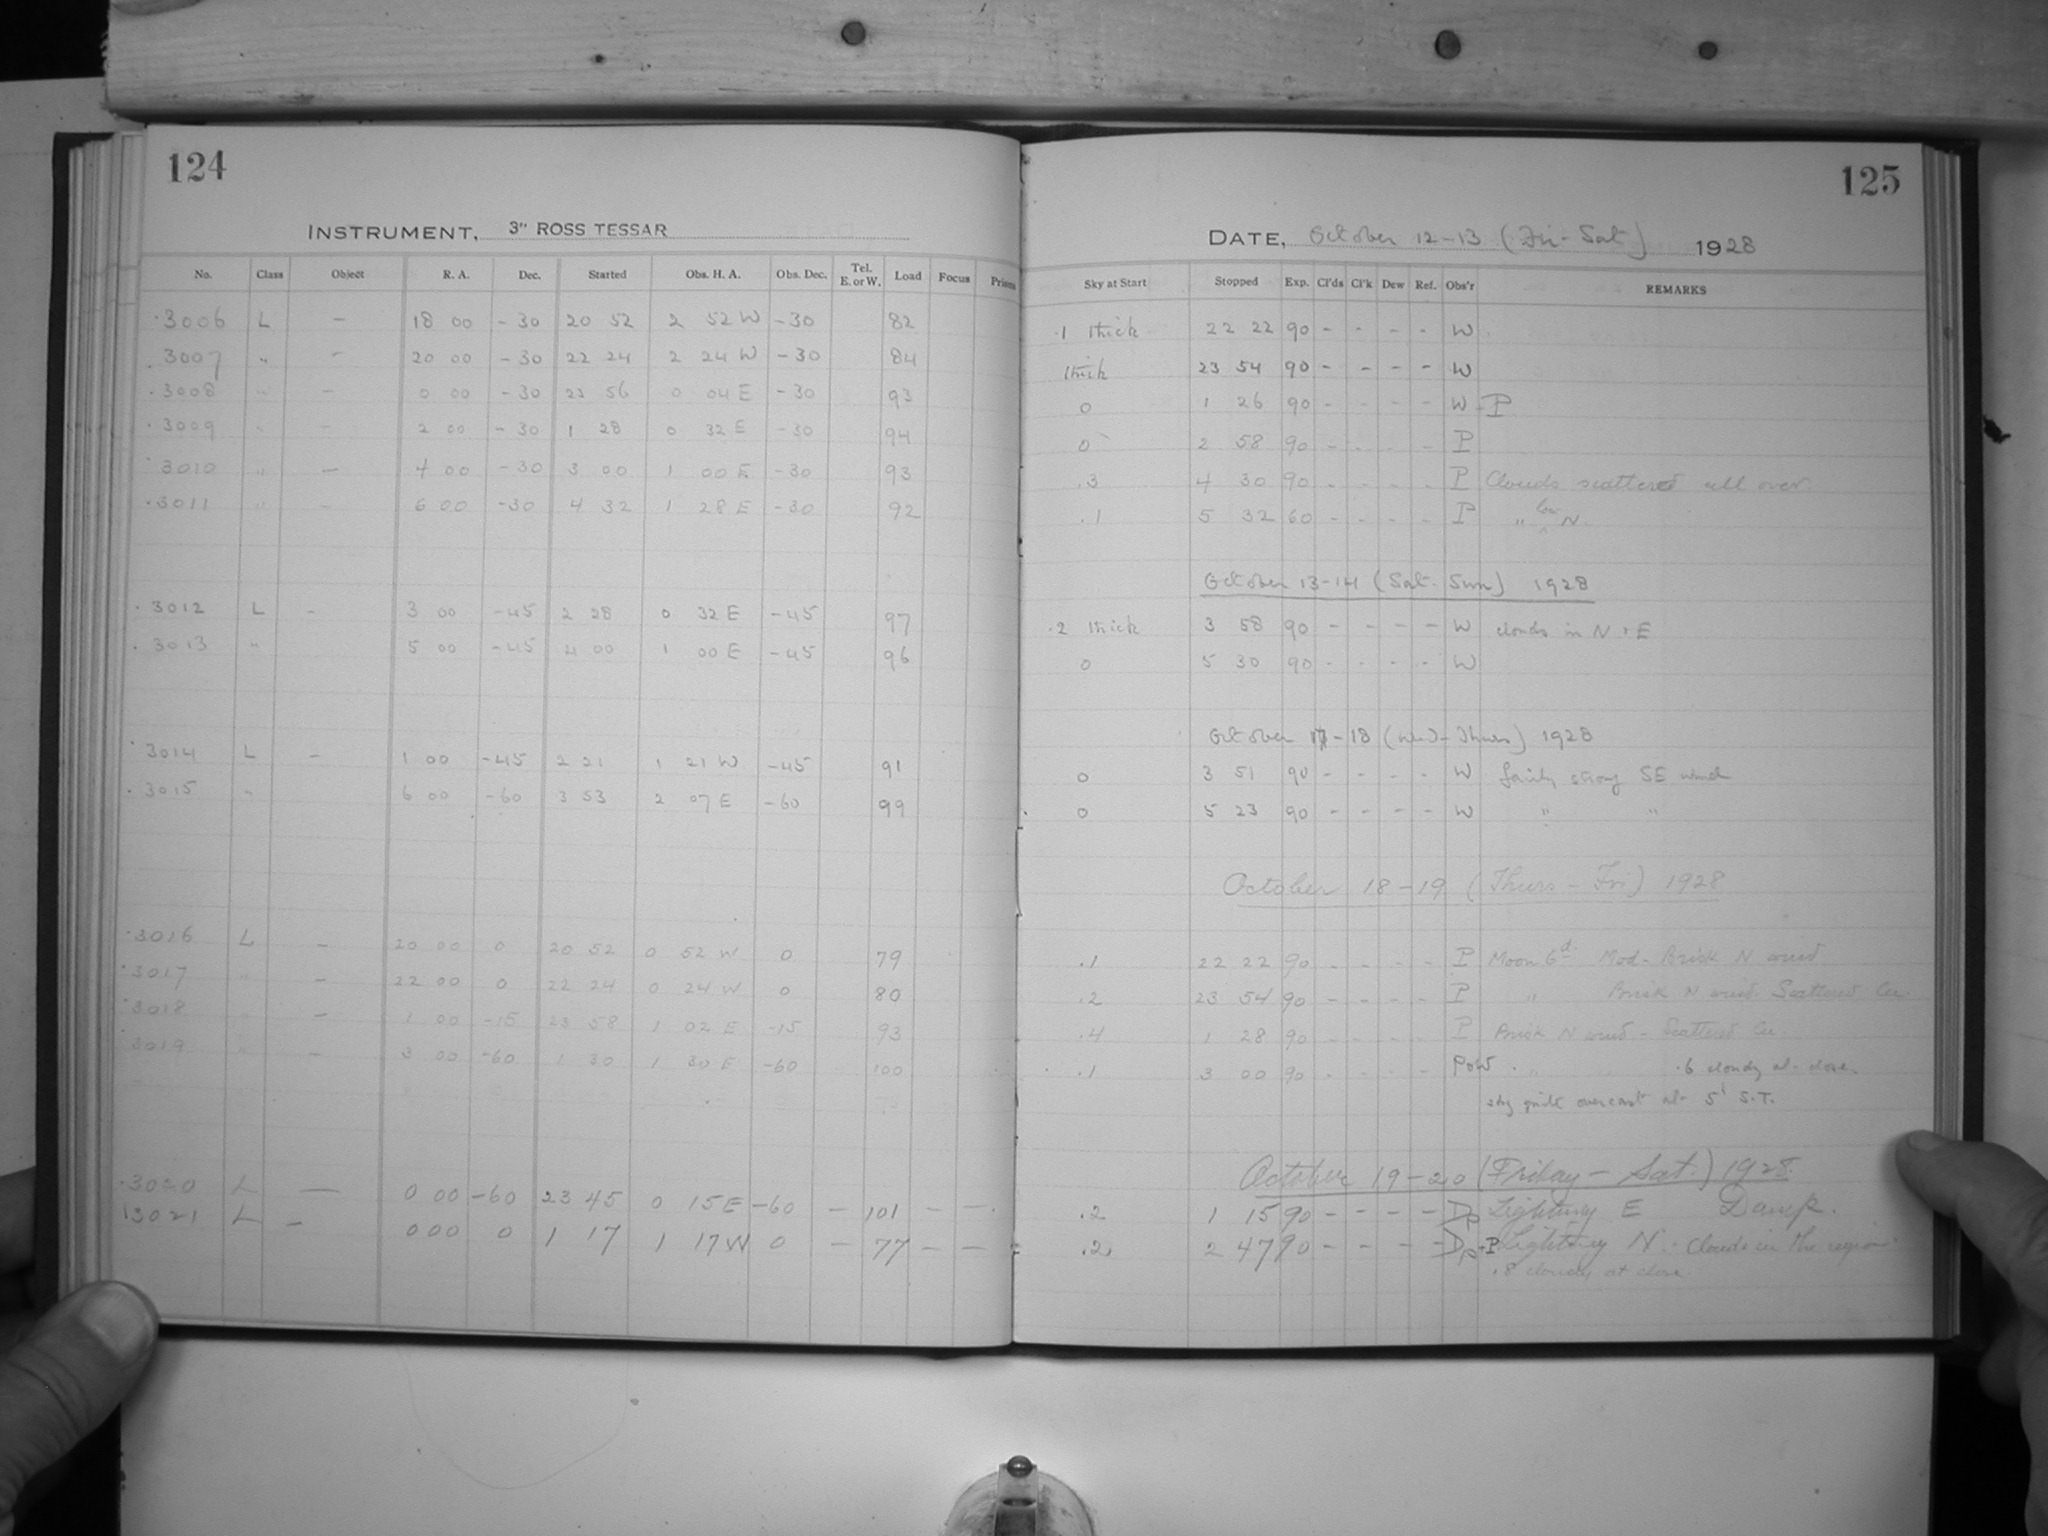 124
INSTRUMENT, 3" ROSS TESSAR
No. Class Object R. A. Dec. Started Obs. H. A. Obs. Dec. Tel. E. or W. Load Focus Prism
.3006 L – 18 00 -30 20 52 2 52 W -30 82
.3007 " – 20 00 -30 22 24 2 24 W -30 84
.3008 " – 0 00 -30 23 56 0 04 E -30 93
.3009 " – 2 00 -30 1 28 0 32 E -30 94
.3010 " – 4 00 -30 3 00 1 00 E -30 93
.3011 " – 6 00 -30 4 32 1 28 E -30 92
.3012 L – 3 00 -45 2 28 0 32 E -45 97
.3013 " 5 00 -45 4 00 1 00 E -45 96
.3014 L – 1 00 -45 2 21 1 21 W -45 91
.3015 " 6 00 -60 3 53 2 07 E -60 99
.3016 L – 20 00 0 20 52 0 52 W 0 79
.3017 " – 22 00 0 22 24 0 24 W 0 80
.3018 " – 1 00 -15 23 58 1 02 E -15 93
.3019 " – 3 00 -60 1 30 1 30 E -60 100
.3020 L – 0 00 -60 23 45 0 15 E -60 – 101 – –
.3021 L – 0 00 0 1 17 1 17 W 0 – 77 – –
125
DATE, October 12-13 (Fri-Sat) 1928
Sky at Start Stopped Exp. Cl'ds Cl'k Dew Ref. Obs'r REMARKS
.1 thick 22 22 90 - - - - W
thick 23 54 90 - - - - W
0 1 26 90 - - - - W-P
0 2 58 90 - - - - P
.3 4 30 90 - - - - P Clouds scattered all over
.1 5 32 60 - - - - P " low N.
October 13-14 (Sat. Sun) 1928
.2 thick 3 58 90 - - - - W clouds in N + E
0 5 30 90 - - - - W
October 17-18 (Wed-Thurs) 1928
0 3 51 90 - - - - W fairly strong SE wind
0 5 23 90 - - - - W " "
October 18-19 (Thurs-Fri) 1928
.1 22 22 90 - - - - P Moon 6d Mod-Brisk N wind
.2 23 54 90 - - - - P " Brisk N wind. Scattered Cu
.4 1 28 90 - - - - P Brisk N wind - Scattered Cu
.1 3 00 90 - - - - PoW " .6 cloudy at close
sky quite overcast at 5h S.T.
October 19-20 (Friday-Sat.) 1928
.2 1 15 90 - - - - Dp Lightning E Damp.
.2 2 47 90 - - - - Dp-P Lightning N. - Clouds in the region
.8 cloudy at close